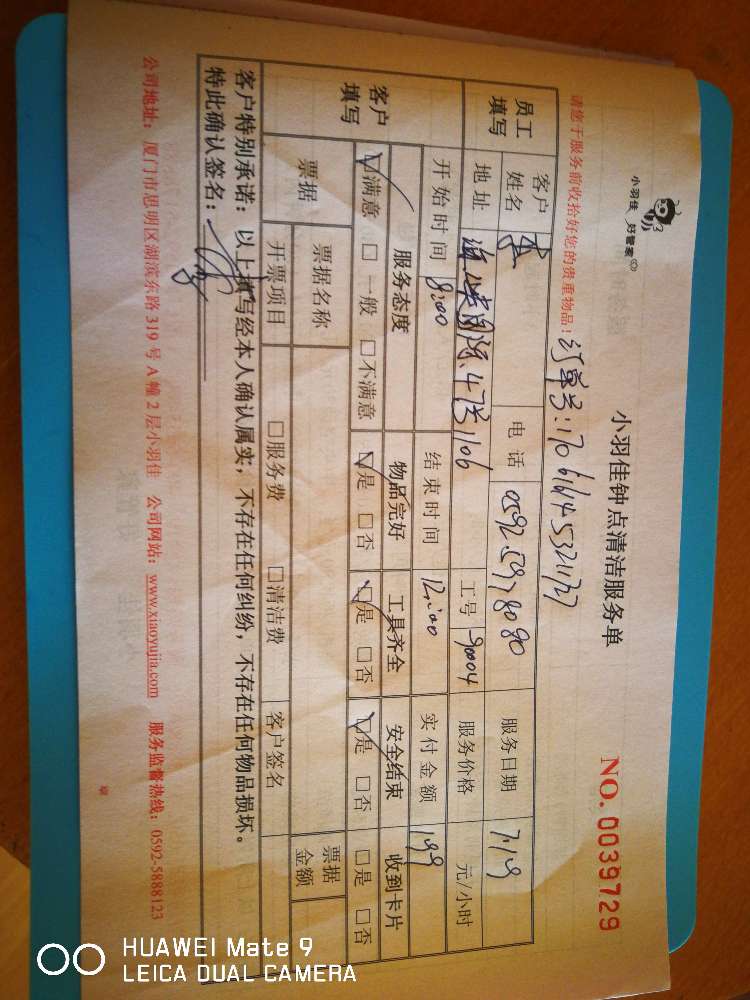 小羽佳 好管家
小羽佳钟点清洁服务单
NO. 0039729
请您于服务前收拾好您的贵重物品！
订单号:170616145321127
员工填写 客户姓名 电话 0592.5978080 服务日期 7.19
地址 国际.47号106 工号 90004 服务价格 元/小时
开始时间 8:00 结束时间 12:00 实付金额 199
客户填写 服务态度 物品完好 工具齐全 安全结束 收到卡片
☑满意 □一般 □不满意 ☑是 □否 ☑是 □否 ☑是 □否 □是 □否
票据 票据名称 票据金额
开票项目 □服务费 □清洁费 客户签名
客户特别承诺：以上填写经本人确认属实；不存在任何纠纷，不存在任何物品损坏。
特此确认签名：
公司地址：厦门市思明区湖滨东路 319 号 A 幢 2 层小羽佳 公司网站：www.xiaoyujia.com 服务监督热线：0592-5888123
HUAWEI Mate 9
LEICA DUAL CAMERA